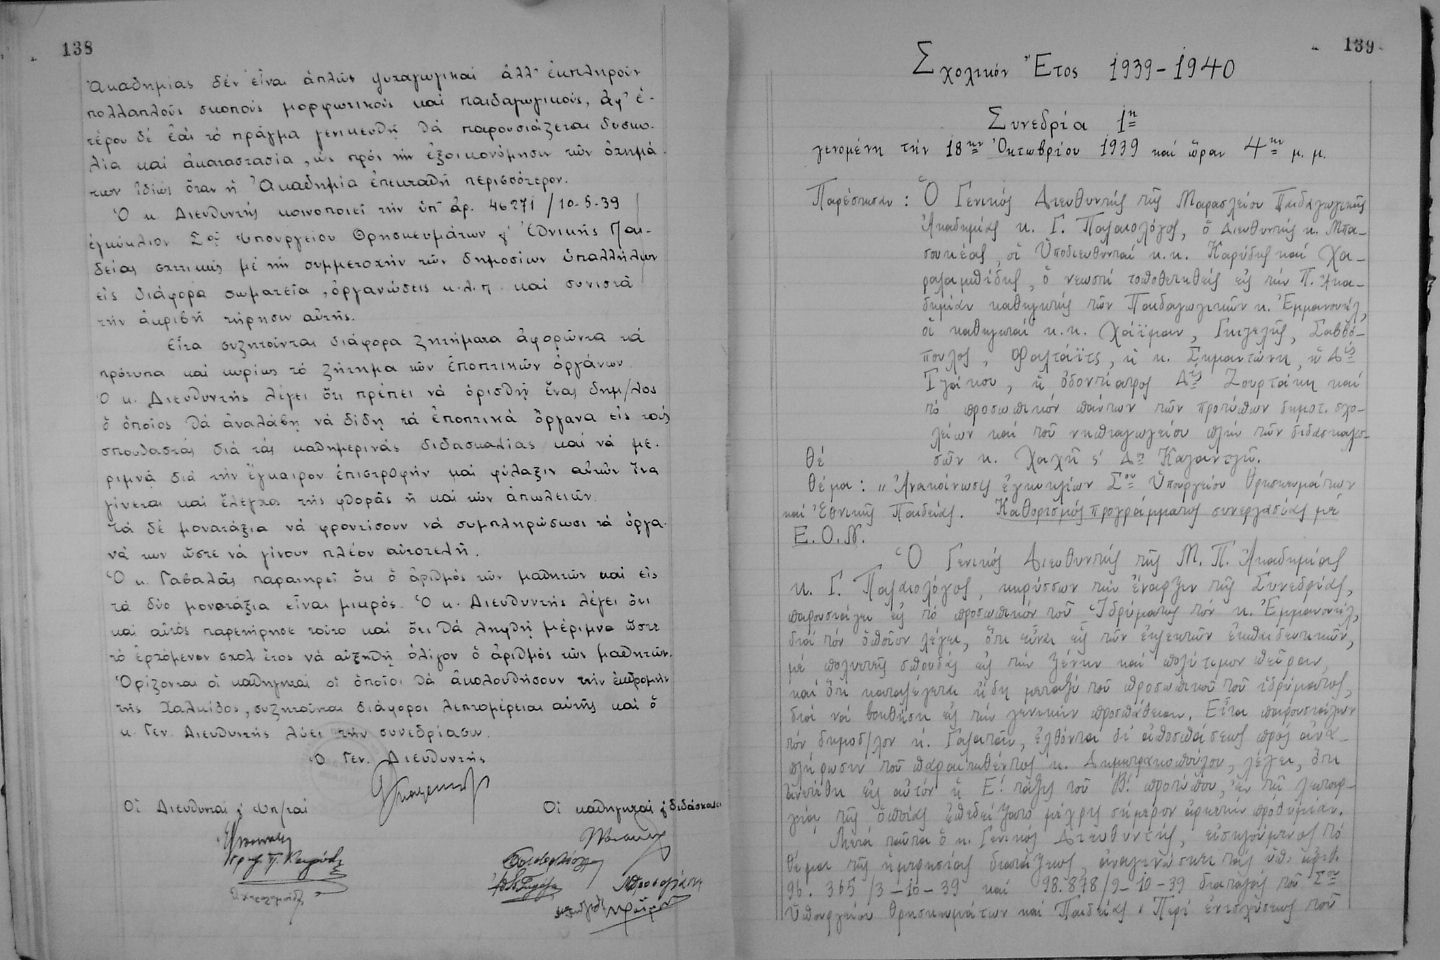 138
Ἀκαδημίας δέν εἶναι ἁπλῶς ψυχαγωγικαί ἀλλ' ἐκπληροῦν
πολλαπλοῦς σκοπούς μορφωτικούς καί παιδαγωγικούς, ἀφ' ἑ-
τέρου δέ ἐάν τό πρᾶγμα γενικευθῇ θά παρουσιάζεται δυσκο-
λία καί ἀκαταστασία, ὡς πρός τήν ἐξοικονόμησιν τῶν ὀχημά-
των ἰδίως ὅταν ἡ Ἀκαδημία ἐπεκταθῇ περισσότερον.
Ὁ κ. Διευθυντής κοινοποιεῖ τήν ὑπ' ἀρ. 46271/10-5-39
ἐγκύκλιον Σοῦ Ὑπουργείου Θρησκευμάτων ϗ Ἐθνικῆς Παι-
δείας σχετικῶς μέ τήν συμμετοχήν τῶν δημοσίων ὑπαλλήλων
εἰς διάφορα σωματεῖα, ὀργανώσεις κ.λ.π. καί συνιστᾶ
τήν ἀκριβῆ τήρησιν αὐτῆς.
Εἶτα συζητοῦνται διάφορα ζητήματα ἀφορῶντα τά
πρότυπα καί κυρίως τό ζήτημα τῶν ἐποπτικῶν ὀργάνων.
Ὁ κ. Διευθυντής λέγει ὅτι πρέπει νά ὁρισθῇ ἕνας δημ/λος
ὁ ὁποῖος θά ἀναλάβῃ νά δίδῃ τά ἐποπτικά ὄργανα εἰς τούς
σπουδαστάς διά τάς καθημερινάς διδασκαλίας καί νά με-
ριμνᾷ διά τήν ἔγκαιρον ἐπιστροφήν καί φύλαξιν αὐτῶν ἵνα
γίνεται καί ἔλεγχος τῆς φθορᾶς ἤ καί τῶν ἀπωλειῶν.
Τά δέ μονοτάξια νά φροντίσουν νά συμπληρώσωσι τά ὄργα-
νά των ὥστε νά γίνουν πλέον αὐτοτελῆ.
Ὁ κ. Γαβαλᾶς παρατηρεῖ ὅτι ὁ ἀριθμός τῶν μαθητῶν καί εἰς
τά δύο μονοτάξια εἶναι μικρός. Ὁ κ. Διευθυντής λέγει ὅτι
καί αὐτός παρετήρησε τοῦτο καί ὅτι θά ληφθῇ μέριμνα ὥστε
τό ἐρχόμενον σχολ. ἔτος νά αὐξηθῇ ὀλίγον ὁ ἀριθμός τῶν μαθητῶν.
Ὁρίζονται οἱ καθηγηταί οἱ ὁποῖοι θά ἀκολουθήσουν τήν ἐκδρομήν
τῆς Χαλκίδος, συζητοῦνται διάφοροι λεπτομέρειαι αὐτῆς καί ὁ
κ. Γεν. Διευθυντής λύει τήν συνεδρίασιν.
Ὁ Γεν. Διευθυντής
Οἱ Διευθυνταί ϗ
Οἱ καθηγηταί ϗ διδάσκαλοι
139
Σχολικόν Ἔτος 1939-1940
Συνεδρία 1η
γενομένη τήν 18ην Ὀκτωβρίου 1939 καί ὥραν 4ην μ.μ.
Παρέστησαν : Ὁ Γενικός Διευθυντής τῆς Μαρασλείου Παιδαγωγικῆς
Ἀκαδημίας κ. Γ. Παλαιολόγος, ὁ Διευθυντής κ. Μπα-
σουκέας, οἱ Ὑποδιευθυνταί κ.κ. Καρύδης καί Χα-
ραλαμπίδης, ὁ νεωστί τοποθετηθείς εἰς τήν Π. Ἀκα-
δημίαν καθηγητής τῶν Παιδαγωγικῶν κ. Ἐμμανουήλ,
οἱ καθηγηταί κ.κ. Χάϊμαν, Γκιγέλης, Σαββό-
πουλος, Φαλτάϊτς, ἡ κ. Σημαντώνη, ἡ Δίς
Γλύκου, ἡ ὀδοντίατρος Δίς Ζουρτάκη καί
τό προσωπικόν πάντων τῶν προτύπων δημοτ. σχο-
λείων καί τοῦ νηπιαγωγείου πλήν τῶν διδασκαλισ-
Θέ σῶν κ. Χαχῆ ϗ Δη Καλαντζῆ.
Θέμα : " Ἀνακοίνωσις ἐγκυκλίων Σοῦ Ὑπουργείου Θρησκευμάτων
καί Ἐθνικῆς Παιδείας. Καθορισμός προγράμματος συνεργασίας μέ
Ε.Ο.Ν.
Ὁ Γενικός Διευθυντής τῆς Μ. Π. Ἀκαδημίας
κ. Γ. Παλαιολόγος, κηρύσσων τήν ἔναρξιν τῆς Συνεδρίας,
παρουσιάζει εἰς τό προσωπικόν τοῦ Ἱδρύματος τόν κ. Ἐμμανουήλ,
διά τόν ὁποῖον λέγει, ὅτι εἶναι εἷς τῶν ἐκλεκτῶν ἐκπαιδευτικῶν,
μέ πολυετεῖς σπουδάς εἰς τήν ξένην καί πολύτιμον πεῖραν,
καί ὅτι καταλέγεται ἤδη μεταξύ τοῦ προσωπικοῦ τοῦ ἱδρύματος,
διά νά βοηθήσῃ εἰς τήν γενικήν προσπάθειαν. Εἶτα παρουσιάζων
τόν δημοδ/λον κ. Γαλατᾶν, ἐλθόντα ἐξ ἀποσπάσεως πρός ἀνα-
πλήρωσιν τοῦ παραιτηθέντος κ. Δημητρακοπούλου, λέγει, ὅτι
ἀνετέθη εἰς αὐτόν ἡ Ε΄ τάξις τοῦ Β΄ προτύπου, ἐν τῇ λειτουρ-
γίᾳ τῆς ὁποίας ἐπεδείξατο μέχρι σήμερον ἀρκετήν προθυμίαν.
Μετά ταῦτα ὁ κ. Γενικός Διευθυντής, εἰσηγούμενος τό
θέμα τῆς ἡμερησίας διατάξεως, ἀναγιγνώσκει τάς ὑπ' ἀριθ.
96.365/3-10-39 καί 98.878/9-10-39 διαταγάς τοῦ Σοῦ
Ὑπουργείου Θρησκευμάτων καί Παιδείας « Περί ἐντολῆς τοῦ